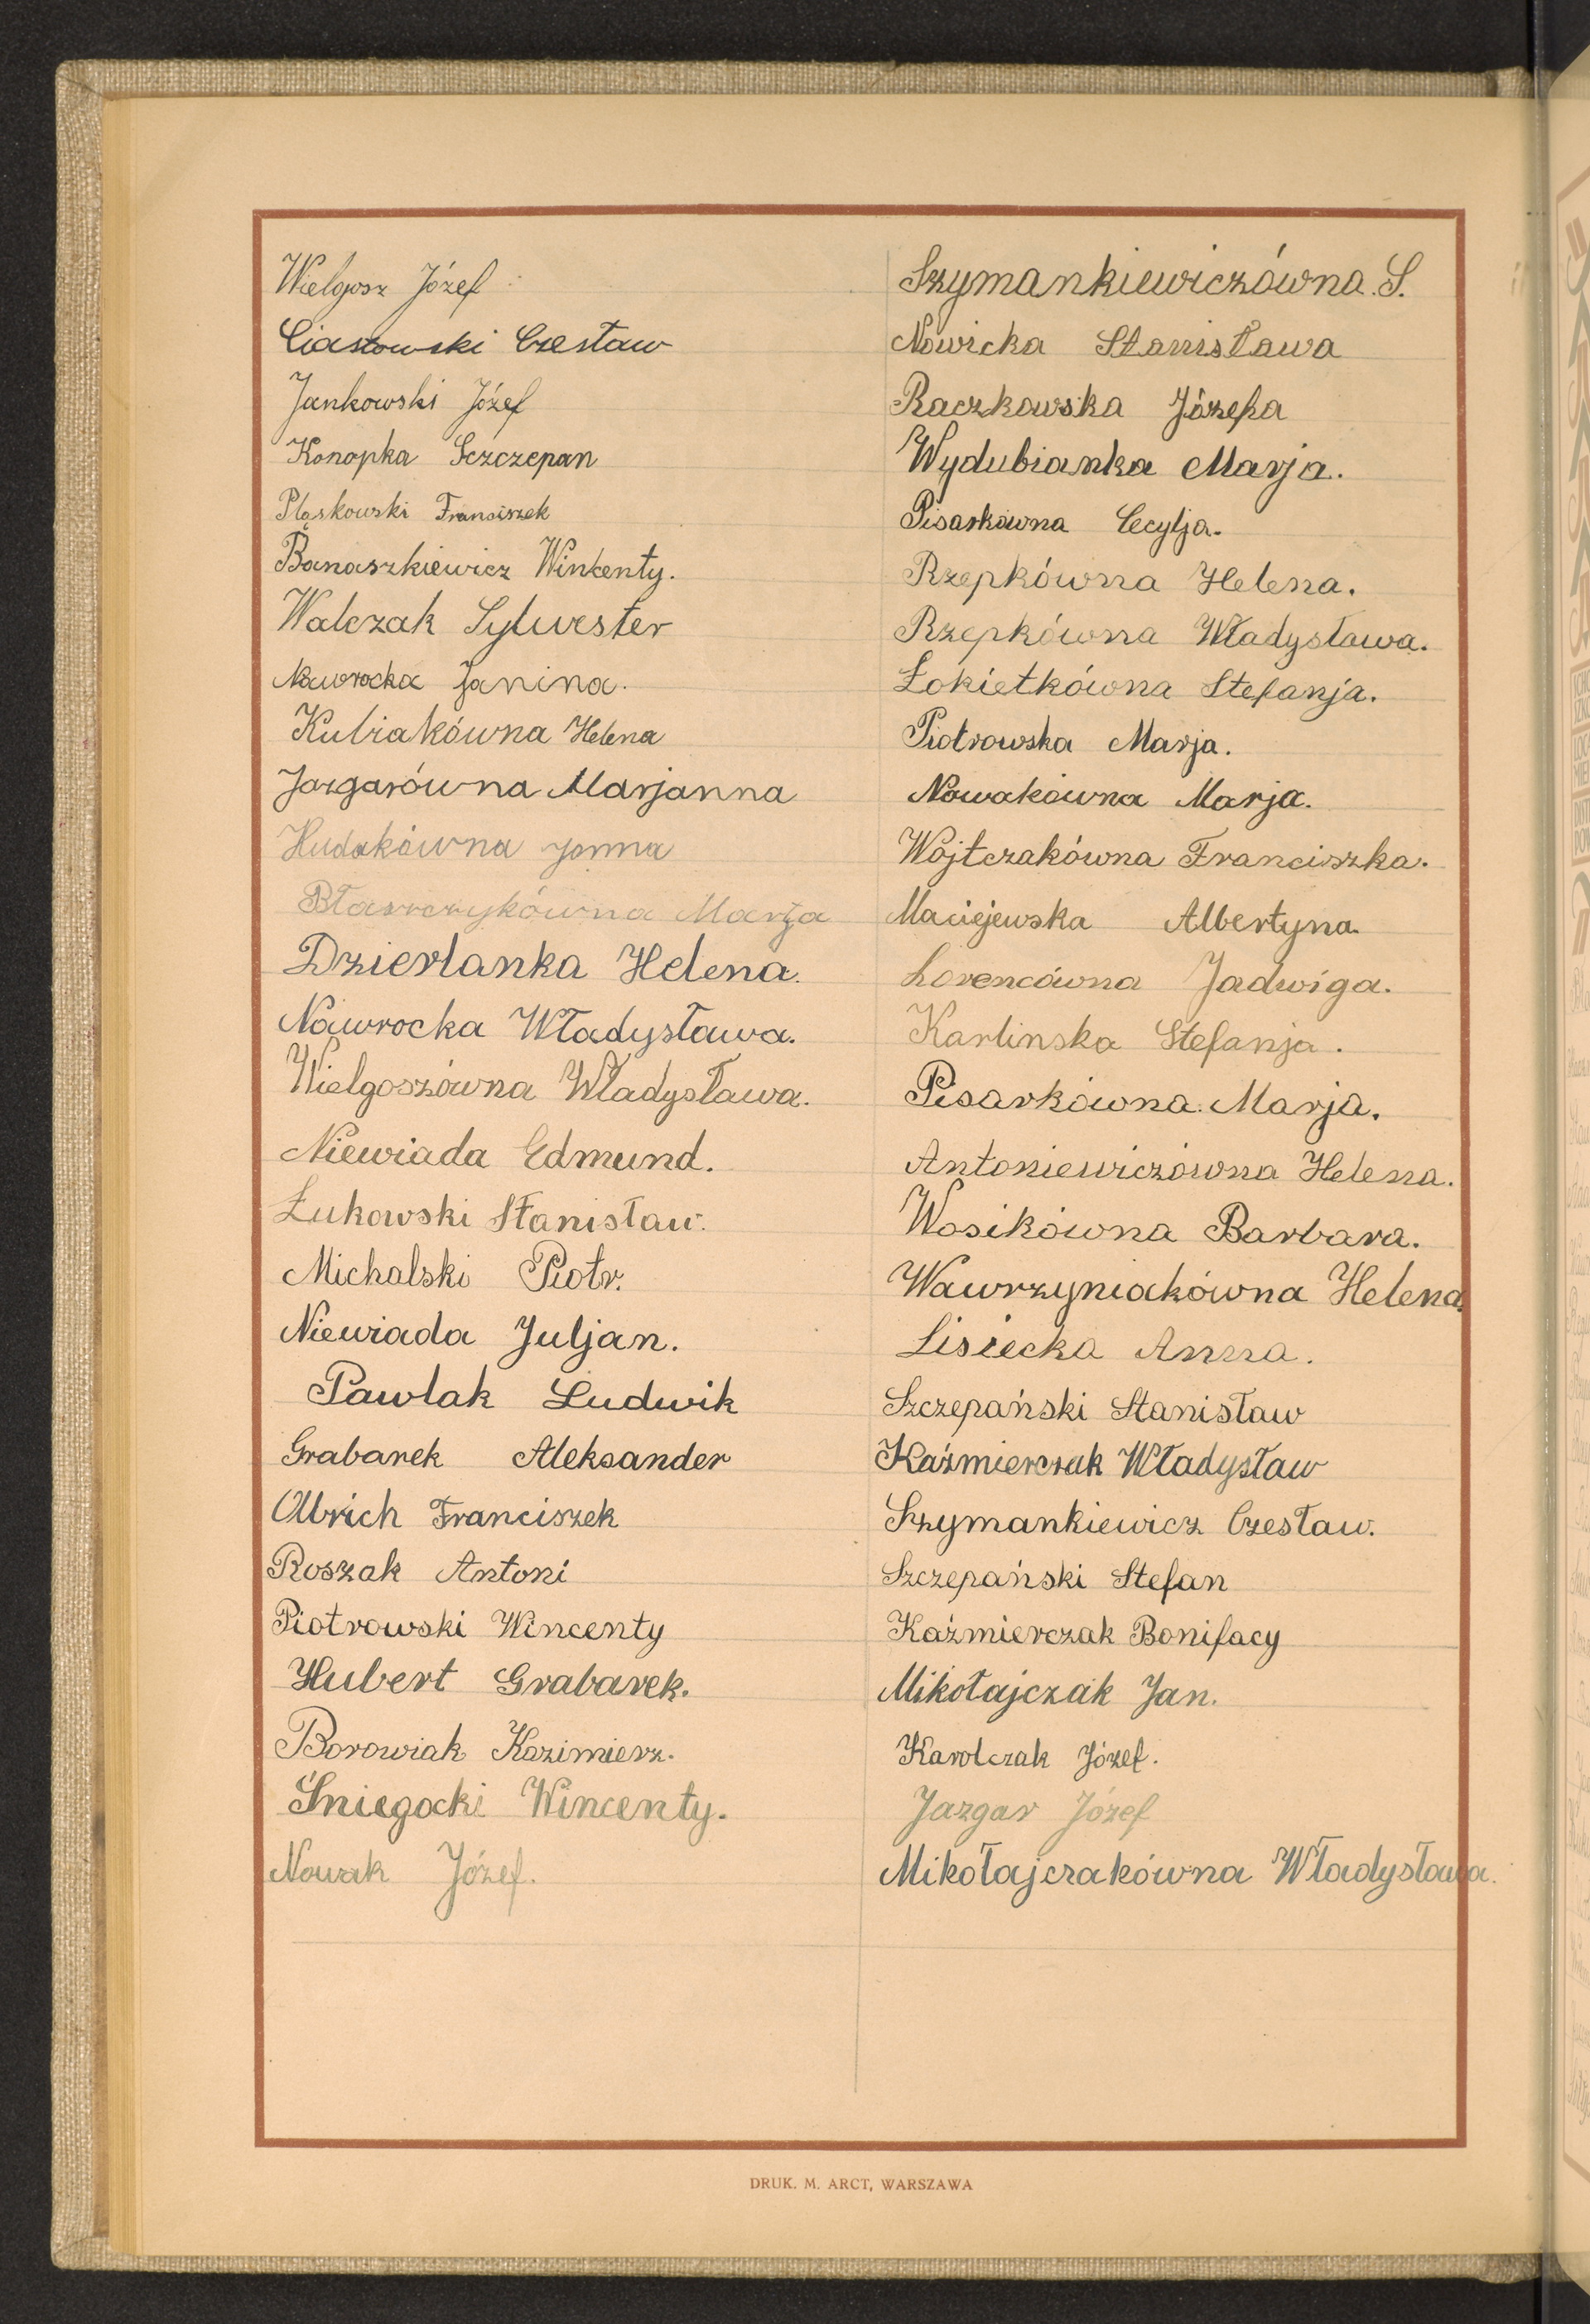 Wielgosz Józef
Ciastowski Czesław
Jankowski Józef
Konopka Szczepan
Pląskowski Franciszek
Banaszkiewicz Wincenty.
Walczak Sylwester
Nawrocka Janina.
Kubiakówna Helena
Jazgarówna Marjanna
Hudakówna
Marja
Dzierlanka Helena.
Nawrocka Władysława.
Wielgoszówna Władysława.
Niewiada Edmund.
Łukowski Stanisław.
Michalski Piotr.
Niewiada Juljan.
Pawlak Ludwik
Grabarek Aleksander
Olbrich Franciszek
Roszak Antoni
Piotrowski Wincenty
Hubert Grabarek.
Borowiak Kazimierz.
Śniegocki Wincenty.
Nowak Józef.
Szymankiewiczówna. S.
Nowicka Stanisława
Raczkowska Józefa
Wydubianka Marja.
Pisarkówna Cecylja.
Rzepkówna Helena.
Rzepkówna Władysława.
Łokietkówna Stefanja.
Piotrowska Marja.
Nowakówna Marja.
Wojtczakówna Franciszka.
Maciejewska Albertyna.
Lorencówna Jadwiga.
Karlinska Stefanja.
Pisarkówna. Marja.
Antoniewiczówna Helena.
Wosikówna Barbara.
Wawrzyniakówna Helena.
Lisiecka Anna.
Szczepański Stanisław
Kaźmierczak Władysław
Szymankiewicz Czesław.
Szczepański Stefan
Kaźmierczak Bonifacy
Mikołajczak Jan.
Karolczak Józef.
Jazgar Józef
Mikołajczakówna Władysława.
DRUK. M. ARCT, WARSZAWA